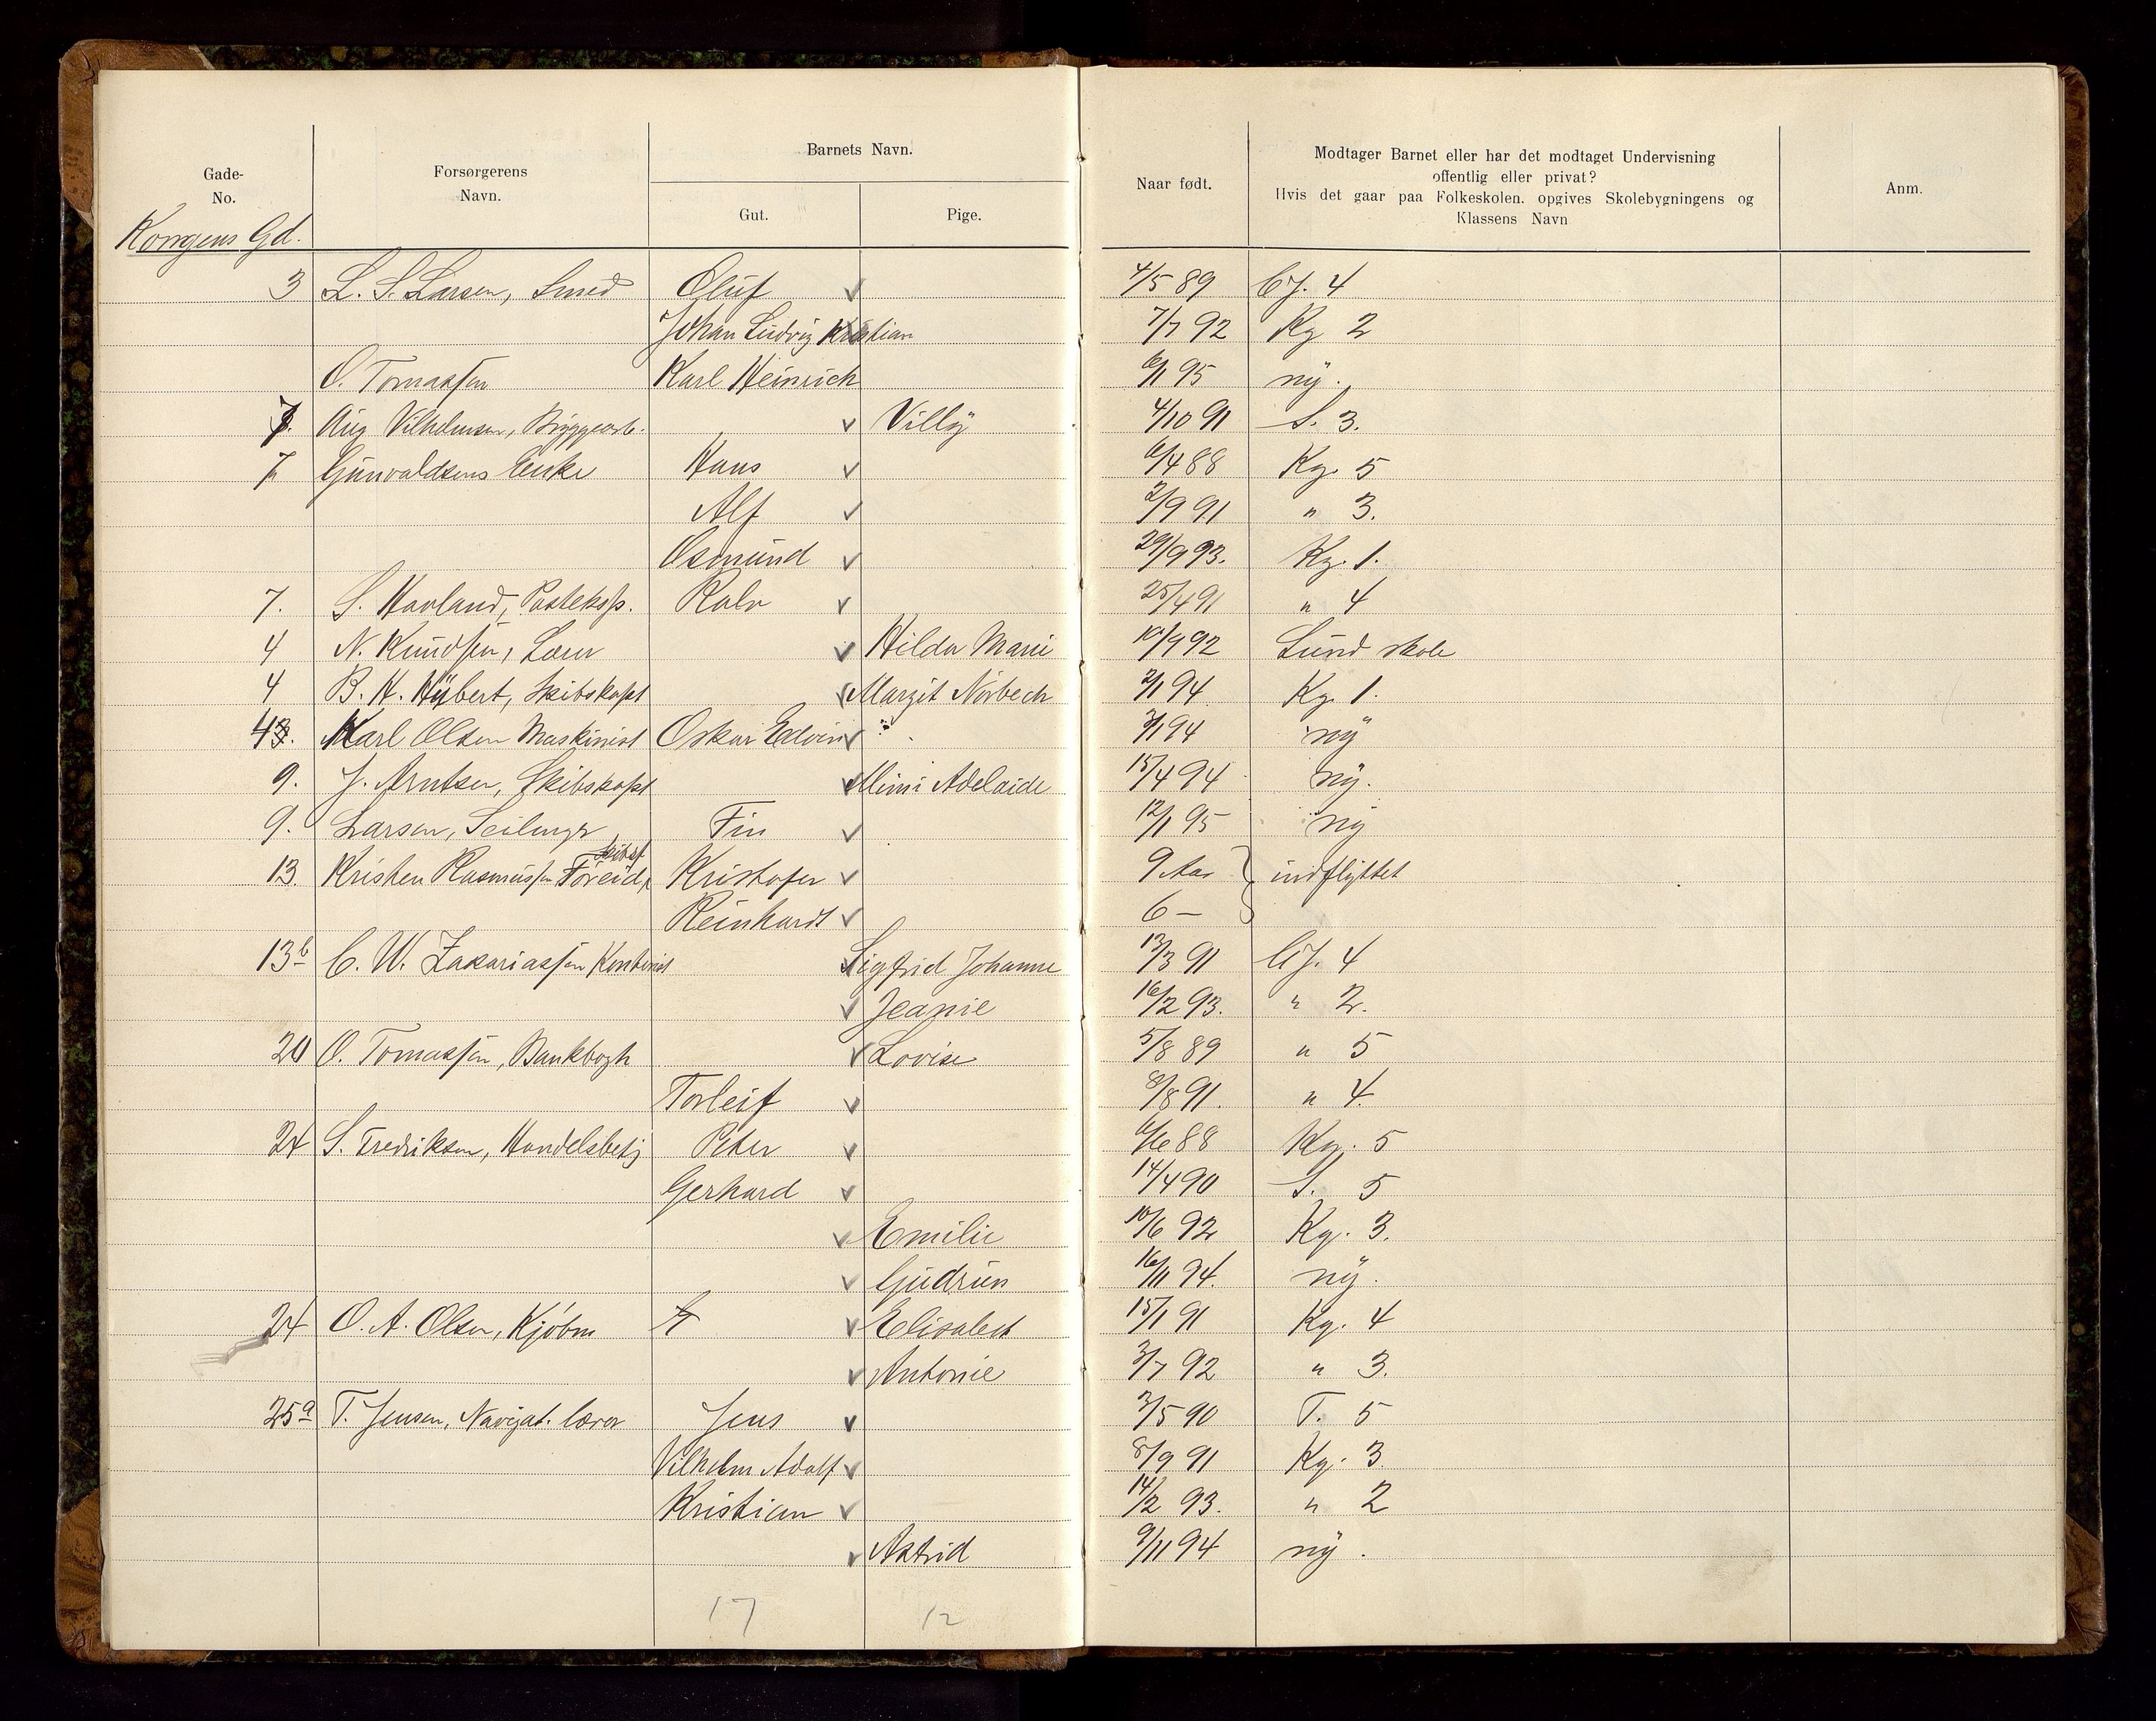 Gade-
No.
Forsørgerens
Navn.
Barnets Navn.
Gut.
Pige.
Naar født.
Modtager Barnet eller har det modtaget Undervisning
offentlig eller privat?
Hvis det gaar paa Folkeskolen. opgives Skolebygningens og
Klassens Navn
Anm.
Kongens Gd.
3 L. S. Larsen, Smed Oluf ✓ 4/5 89 4
Johan Ludvig Kristian 7/7 92 Kg 2
O. Tomassen Karl Heinrich 6/1 95 ny.
7. Aug Vilhelmsen, Bryggearb. ✓ Villy 4/10 91 S. 3.
7 Gunvaldsens Enke Hans ✓ 6/4 88 Kg. 5
Alf ✓ 2/9 91 " 3.
Osmund ✓ 29/9 93. Kg. 1.
7. S. Havland, Posteksp. Ralv ✓ 25/4 91 " 4
4 N. Knudsen, Lærer ✓ Hilda Marie 10/9 92 Lund skole
4 B. H. Hybert, Skibskapt ✓ Margit Nörbech 2/1 94 Kg. 1.
4 Karl Olsen Maskinist Oskar Edvin ✓ " 3/1 94 ny
9. J. Arntsen, Skibskapt ✓ Mimi Adelaide 15/4 94 ny.
9. Larsen, Seilmgr, Fin ✓ 12/1 95 ny
13. Kristen Rasmussen Skibsf Kristofer ✓ 9 Aar } indflyttet
Reinhardt ✓ 6 —
13b C. W. Zakariassen Kontorist ✓ Sigfrid Johanne 13/3 91 4
✓ Jeanie 16/2 93. " 2.
20 O. Tomassen, Bankbogh ✓ Lovise 5/8 89 " 5
Torleif ✓ 8/8 91. " 4.
24 S. Fredriksen, Handelsbetj Peter ✓ 6/6 88 Kg. 5
Gerhard ✓ 14/4 90 S. 5
✓ Emilie 10/6 92 Kg. 3.
✓ Gudrun 16/11 94. ny.
24 O. A. Olsen, Kjöbm ✓ Elisabet 15/1 91 Kg. 4
✓ Antonie 3/7 92 " 3.
25a T. Jensen, Navigat. lærer Jens ✓ 2/5 90 T. 5
Vilhelm Adolf ✓ 8/9 91 Kg. 3
Kristian ✓ 14/2 93. " 2
✓ Astrid 9/11 94 ny.
17 12